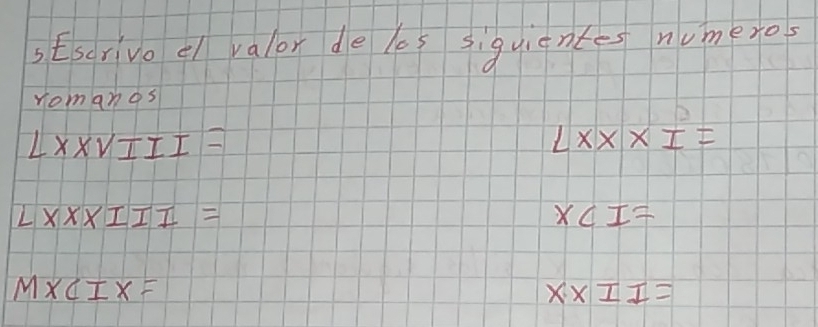 5 Escrivo el valor de los siguientes números
romanos
LXXVIII = LXXXI =
LXXXIII = XCI =
MXCIX = XXII =